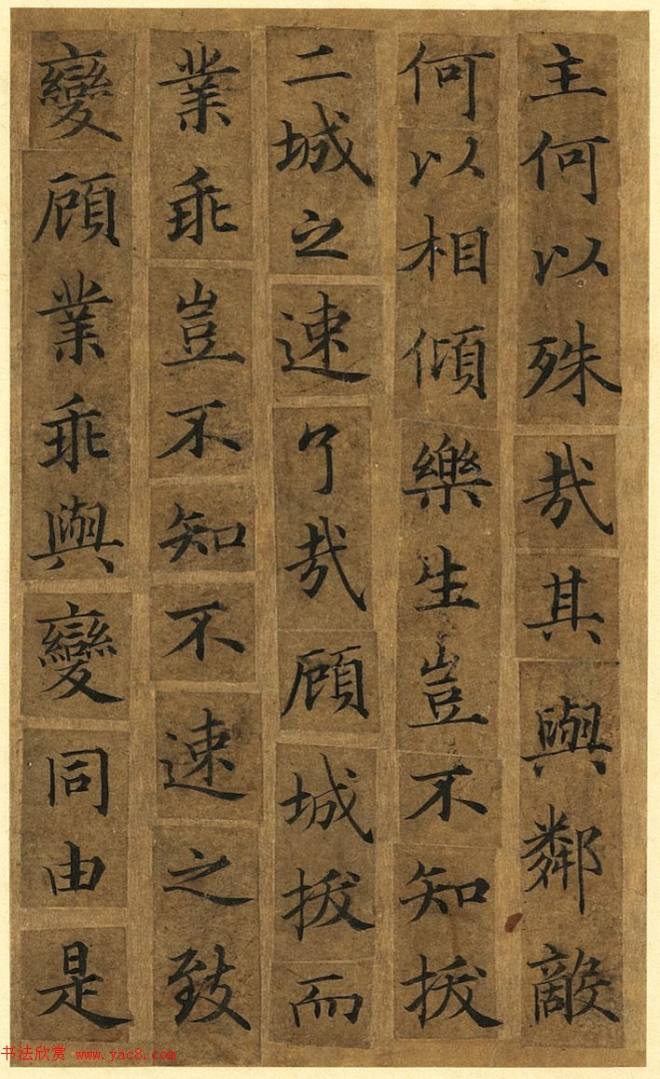 主何以殊哉其與鄰敵
何以相傾樂生豈不知拔
二城之速了哉顧城拔而
業乖豈不知不速之致
變顧業乖與變同由是
书法欣赏 www.yac8.com